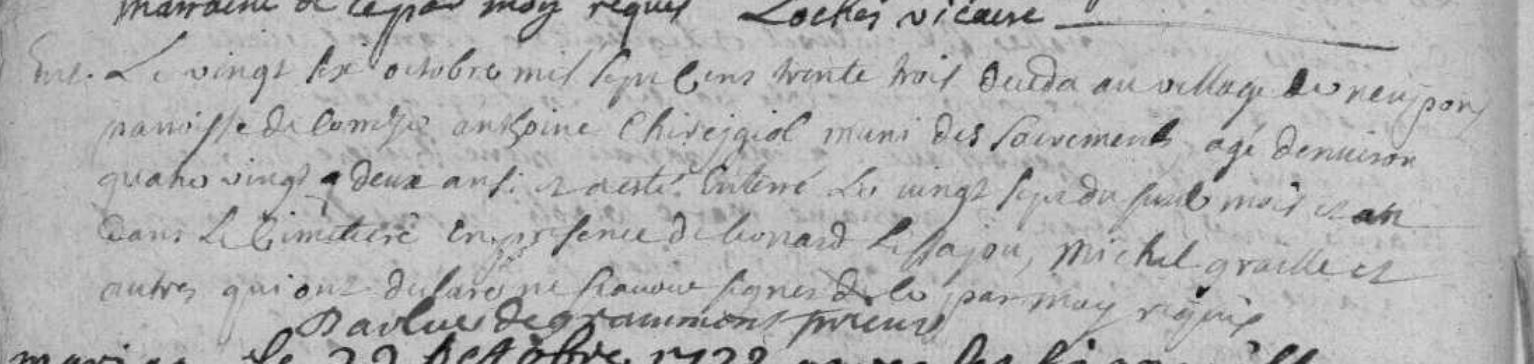 marraine de ce par moy requis Lochés vicaire
Ent. Le vingt six octobre mil sept cens trente trois deceda au village de neufpont
parroisse de antoine muni des sacrements agé denviron
quatre vingt deux ans et a esté Enterré Le vingt sept du susd mois et an
dans Le Cimetiere En presence de Leonard Lissajou, Michel graille et
autres qui ont declaré ne scavoir signer de ce par moy requis
de grammont prieur
Le 22 Octobre 1733